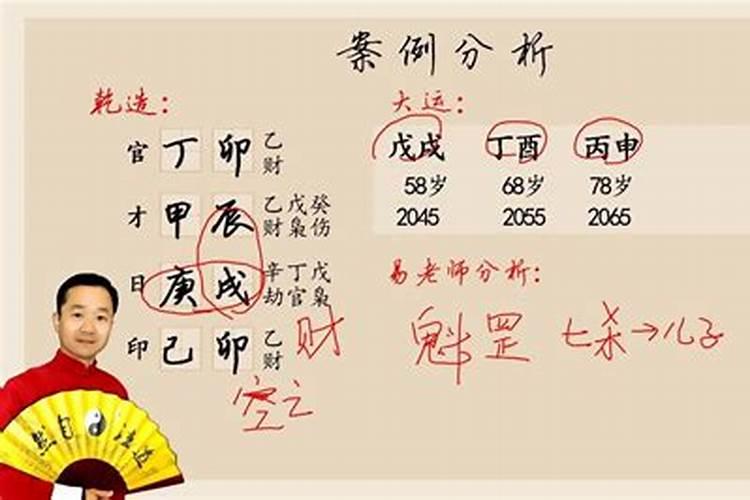 案例分析
乾造：
官 丁 卯 乙财
才 甲 辰 乙财 戊枭 癸伤
日 庚 戌 辛劫 丁官 戊枭
印 己 卯 乙财
财
空亡
大运：
戊戌 丁酉 丙申
58岁 68岁 78岁
2045 2055 2065
易老师分析：
魁罡 七杀→儿子
道法自然